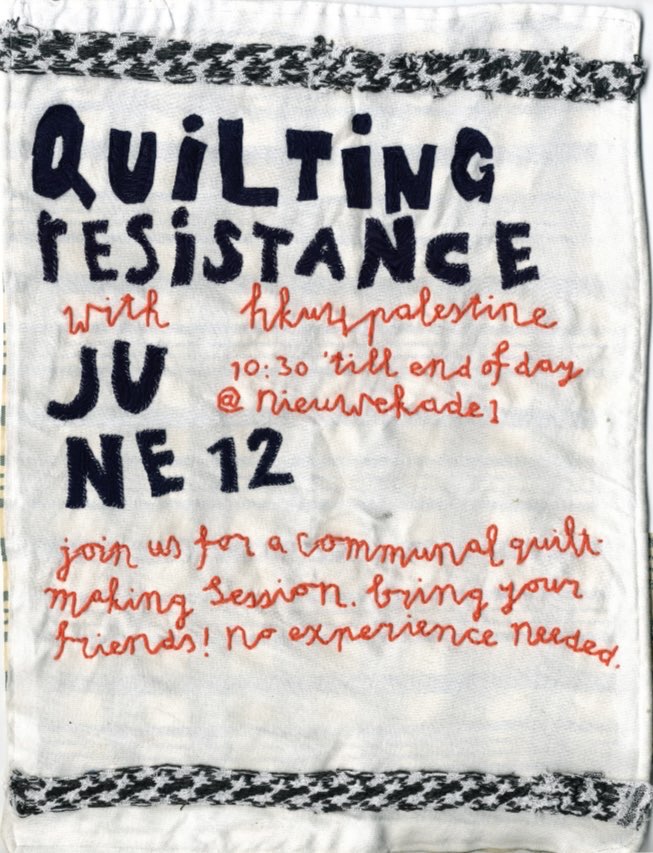 QUiLTiNG
rESiSTANCE
with hku4palestine
JU
10:30 'till end of day
@ nieuwekade1
NE 12
join us for a communal quilt-
making session. bring your
friends! no experience needed.